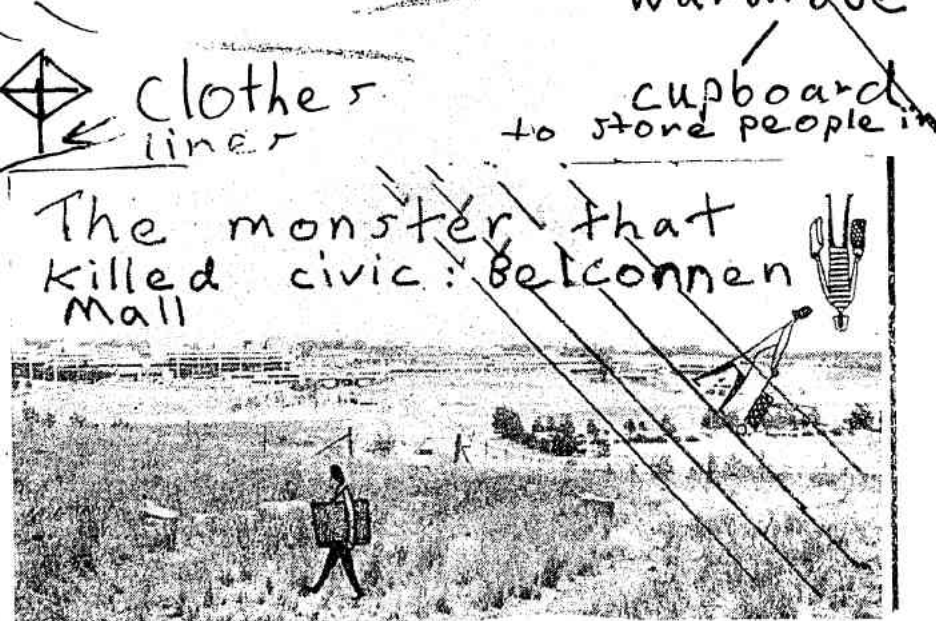 clothes
lines
cupboard
to store people in
The monster that
killed civic: Belconnen
Mall